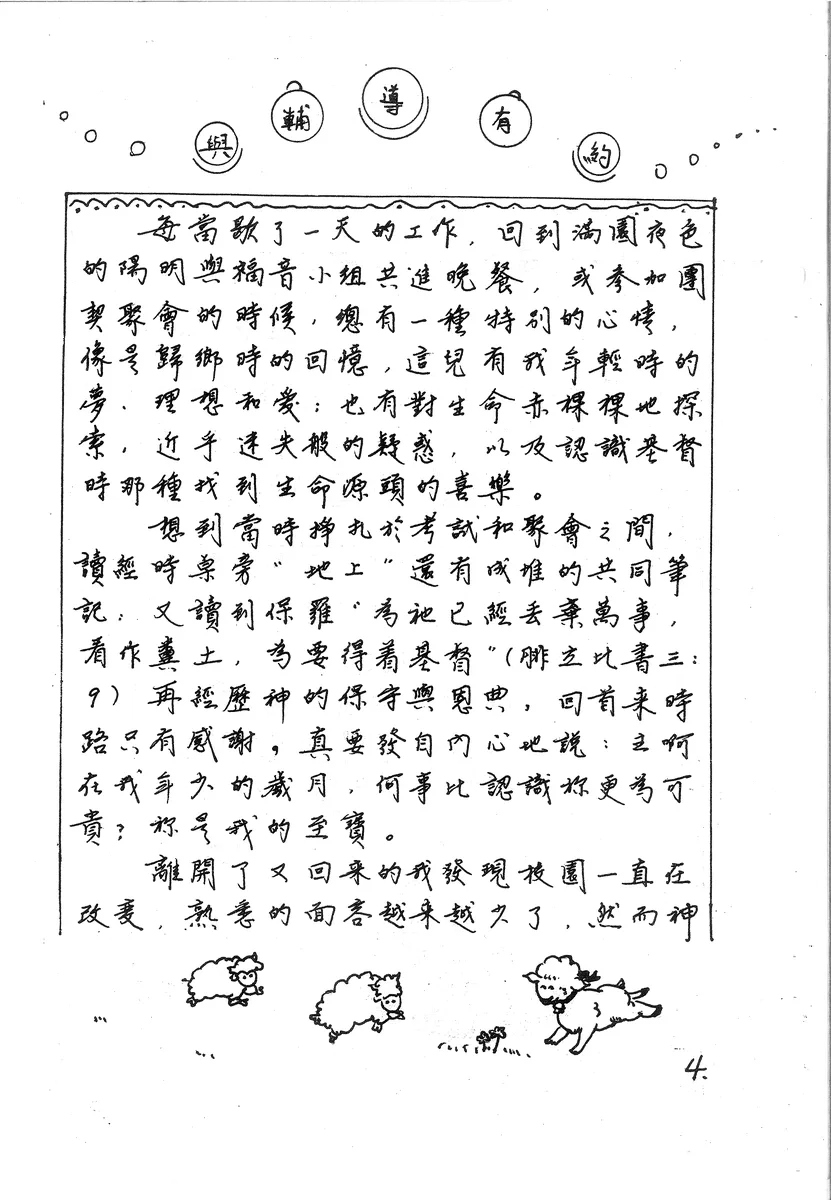 與輔導有約
每當歇了一天的工作，回到滿園夜色
的陽明與福音小組共進晚餐，或參加團
契聚會的時候，總有一種特別的心情，
像是歸鄉時的回憶，這兒有我年輕時的
夢、理想和愛；也有對生命赤裸裸地探
索，近乎迷失般的疑惑，以及認識基督
時那種找到生命源頭的喜樂。
想到當時掙扎於考試和聚會之間，
讀經時桌旁“地上”還有成堆的共同筆
記；又讀到保羅“為祂已經丟棄萬事，
看作糞土，為要得着基督”（腓立比書三：
9）再經歷神的保守與恩典，回首來時
路只有感謝，真要發自內心地說：主啊
在我年少的歲月，何事比認識祢更為可
貴？祢是我的至寶。
離開了又回來的我發現校園一直在
改變，熟悉的面容越來越少了，然而神
4.